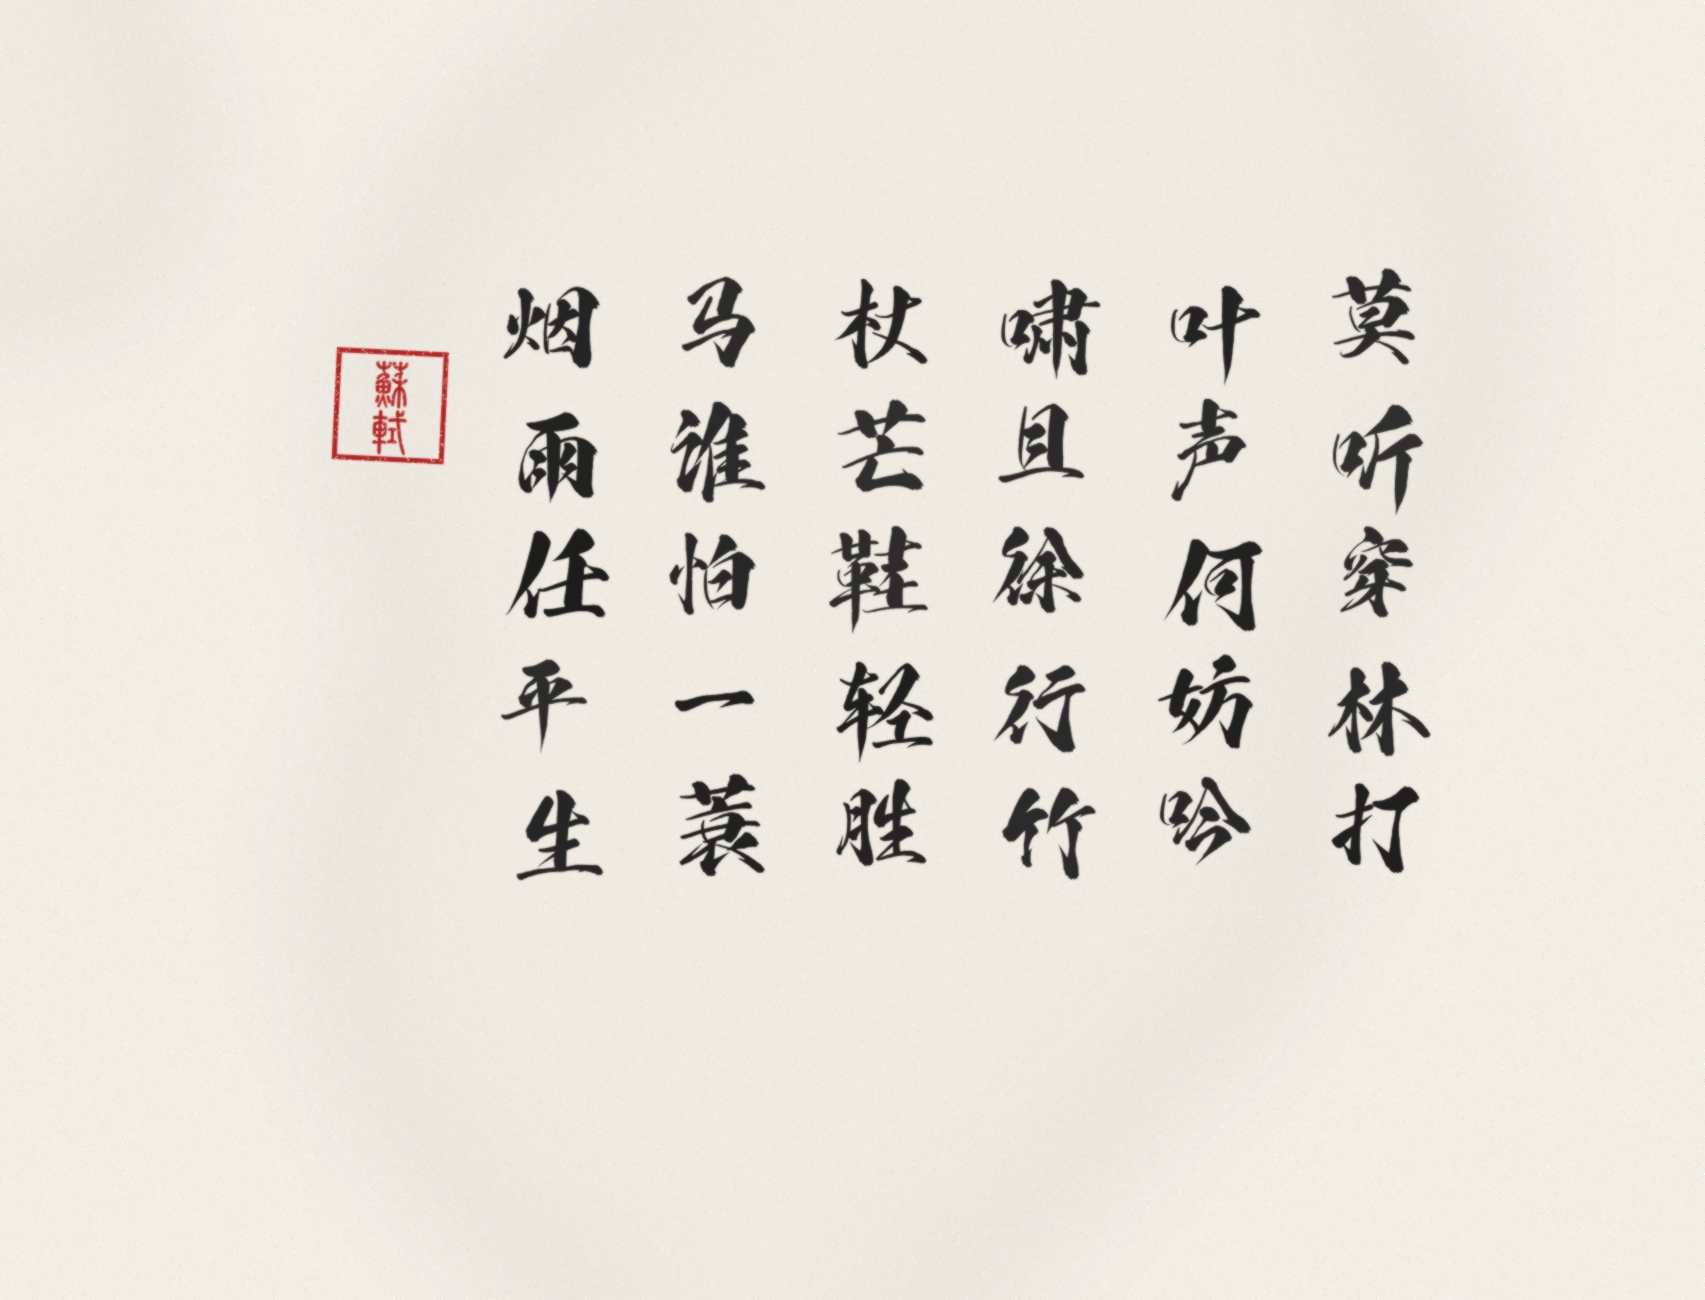 莫听穿林打
叶声何妨吟
啸且徐行竹
杖芒鞋轻胜
马谁怕一蓑
烟雨任平生
蘇軾